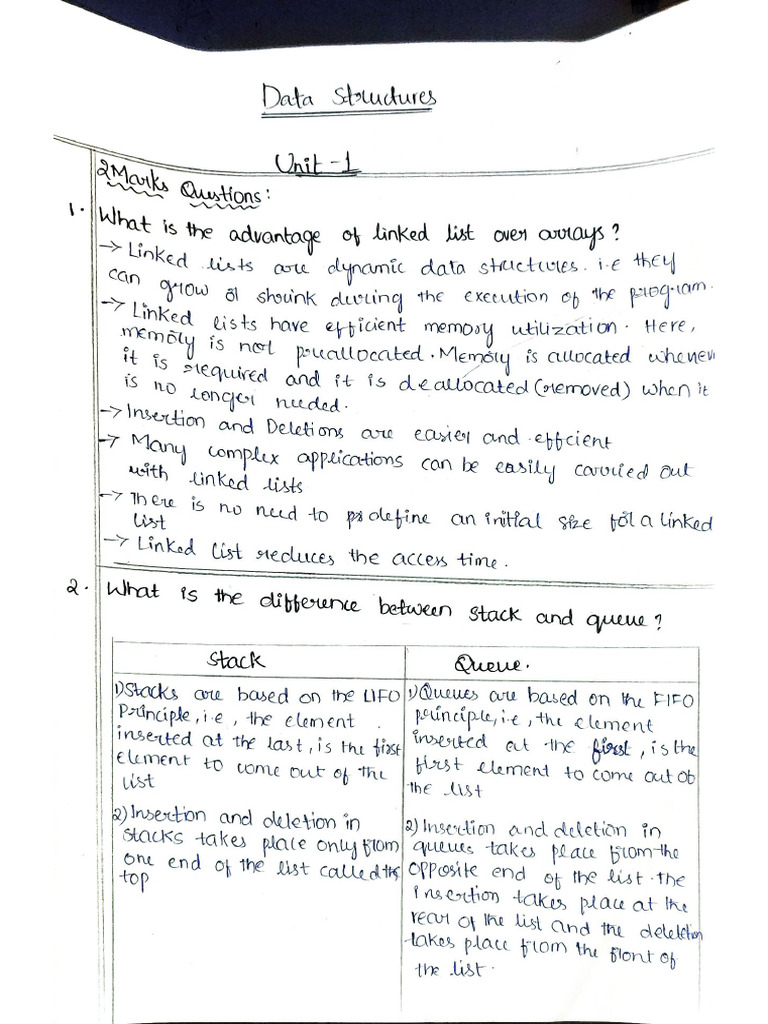 Data Structures
Unit-1
2Marks Questions:
1. What is the advantage of linked list over arrays?
-> Linked lists are dynamic data structures. i.e they
can grow or shrink during the execution of the program.
-> Linked lists have efficient memory utilization. Here,
memory is not preallocated. Memory is allocated whenev
it is required and it is deallocated (removed) when it
is no longer needed.
-> Insertion and Deletions are easier and effcient
-> Many complex applications can be easily carried out
with linked lists
-> There is no need to predefine an initial size for a linked
list
-> Linked list reduces the access time.
2. What is the difference between stack and queue?
Stack
1) Stacks are based on the LIFO
Principle, i.e, the element
inserted at the last, is the first
element to come out of the
list
2) Insertion and deletion in
stacks takes place only from
one end of the list called the
top
Queue.
1) Queues are based on the FIFO
principle, i.e, the element
inserted at the first, is the
first element to come out of
the list
2) Insertion and deletion in
queues takes place from the
opposite end of the list. The
insertion takes place at the
rear of the list and the deleletion
takes place from the front of
the list.